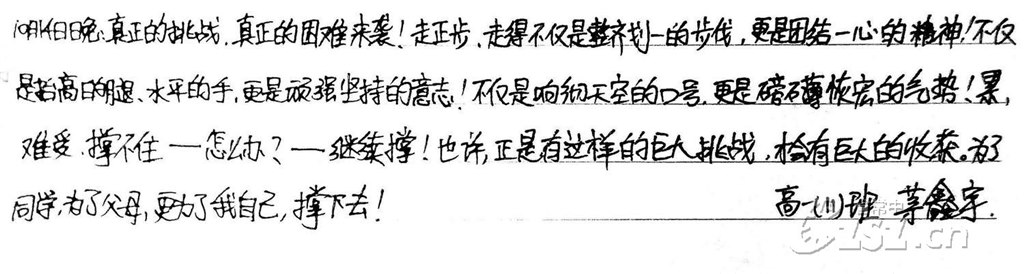 10月14日晚,真正的挑战,真正的困难来袭!走正步,走得不仅是整齐划一的步伐,更是团结一心的精神!不仅
是抬高的腿、水平的手,更是顽强坚持的意志!不仅是响彻天空的口号,更是磅礴恢宏的气势!累,
难受,撑不住——怎么办?——继续撑!也许,正是有这样的巨大挑战,恰有巨大的收获。为了
同学,为了父母,更为了我自己,撑下去!
高一(11)班 茅鑫宇.
zsz.cn